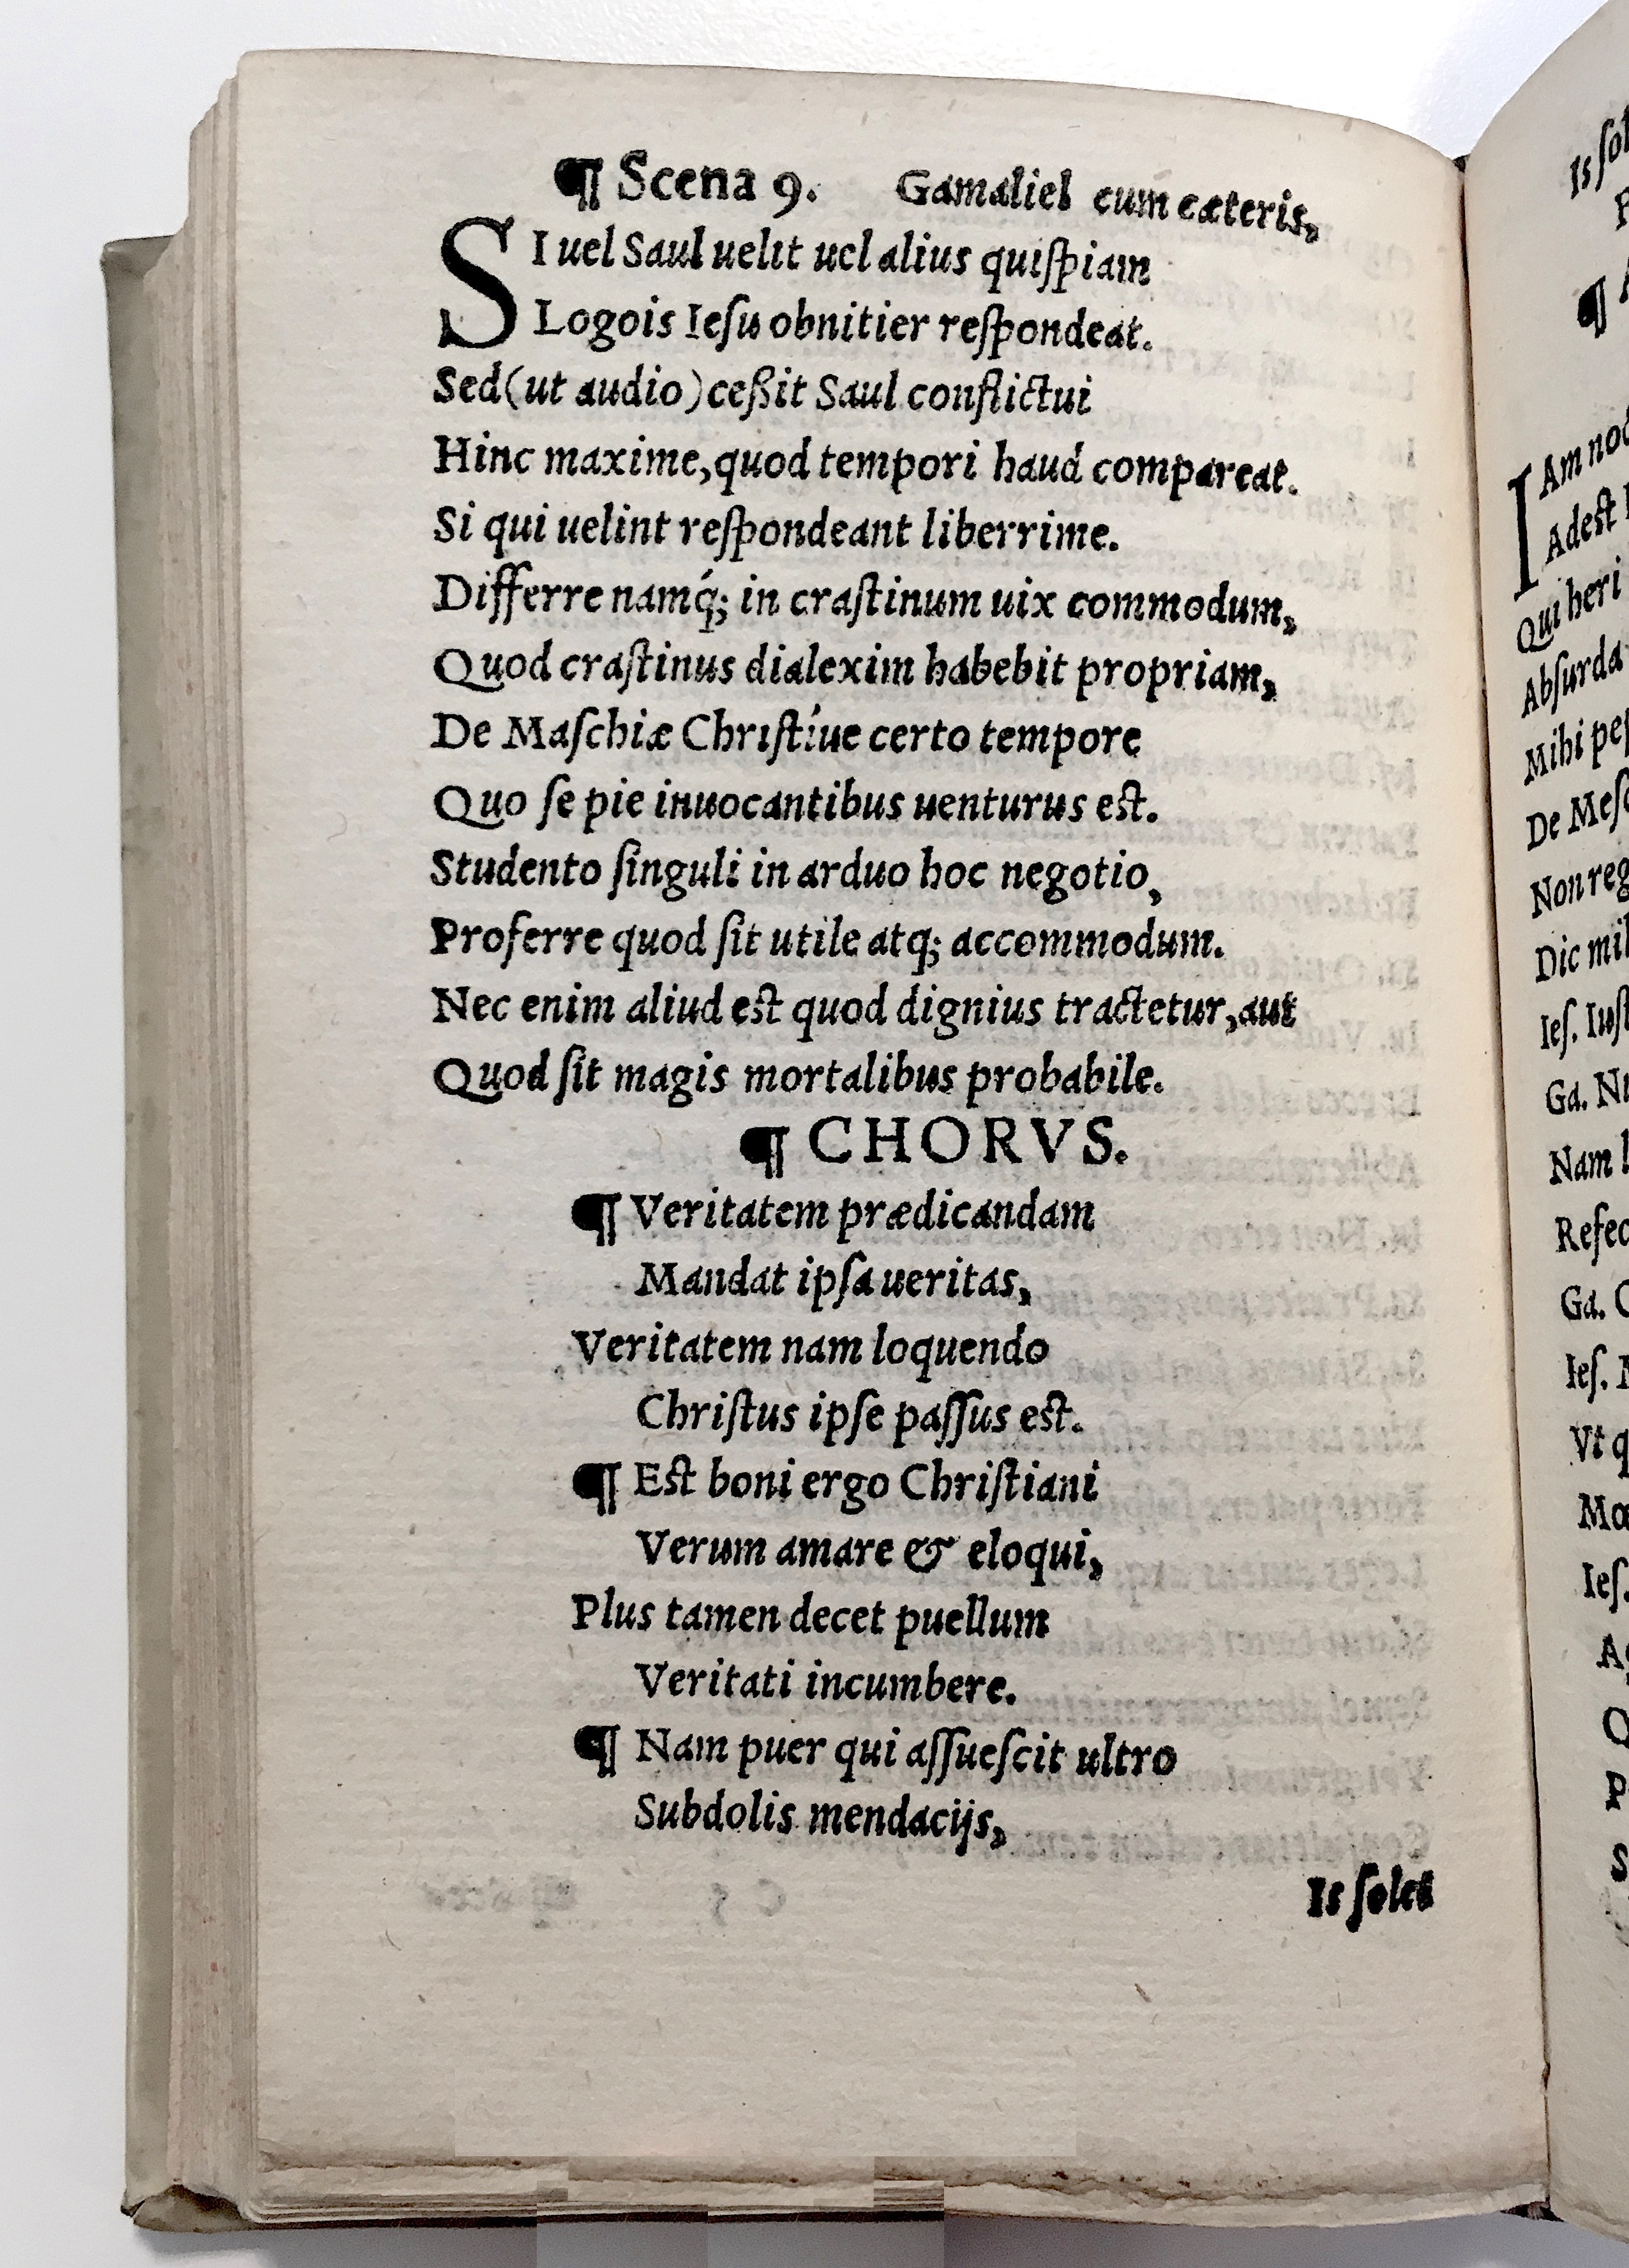 ¶ Scena 9. Gamaliel cum cæteris,
SI uel Saul uelit uel alius quiſpiam
Logois Ieſu obnitier reſpondeat.
Sed (ut audio) ceßit Saul conflictui
Hinc maxime, quod tempori haud compareat.
Si qui uelint reſpondeant liberrime.
Differre namq́; in craſtinum uix commodum,
Quod craſtinus dialexim habebit propriam,
De Maſchiæ Chriſtíue certo tempore
Quo ſe pie inuocantibus uenturus eſt.
Studento ſinguli in arduo hoc negotio,
Proferre quod ſit utile atq; accommodum.
Nec enim aliud eſt quod dignius tractetur, aut
Quod ſit magis mortalibus probabile.
¶ CHORVS.
¶ Veritatem prædicandam
Mandat ipſa ueritas,
Veritatem nam loquendo
Chriſtus ipſe paſſus eſt.
¶ Eſt boni ergo Chriſtiani
Verum amare & eloqui,
Plus tamen decet puellum
Veritati incumbere.
¶ Nam puer qui aſſueſcit ultro
Subdolis mendacijs,
Is ſolet
Is
¶
Am
Adeſt
Qui heri
Absurda
Mihi
De
Non
Dic
Ieſ.
Ga.
Nam
Ga.
Ieſ.
Vt
Ieſ.